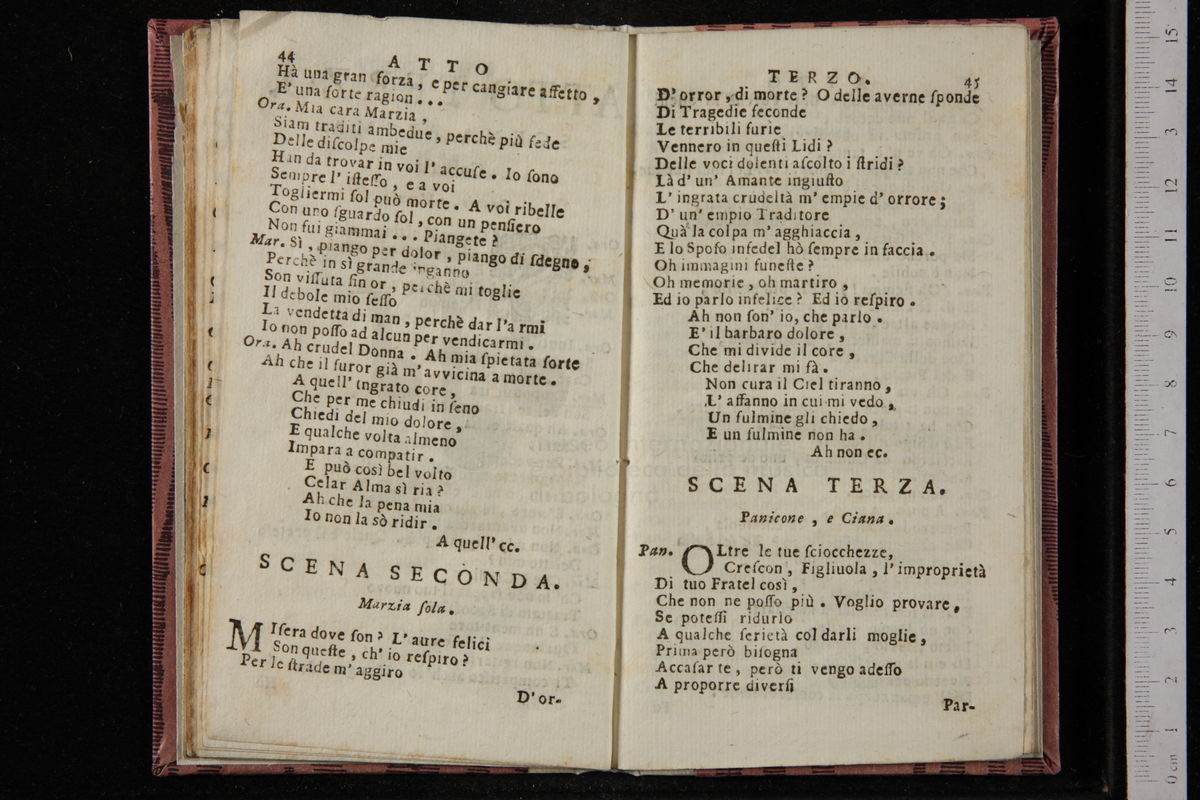 44
ATTO
Hà una gran forza, e per cangiare affetto,
E' una forte ragion...
Ora. Mia cara Marzia,
Siam traditi ambedue, perchè più fede
Delle diſcolpe mie
Han da trovar in voi l' accuſe. Io ſono
Sempre l' iſteſſo, e a voi
Togliermi ſol può morte. A voi ribelle
Con uno ſguardo ſol, con un penſiero
Non fui giammai... Piangete?
Mar. Sì, piango per dolor, piango di ſdegno;
Perchè in sì grande inganno
Son viſſuta fin or, perchè mi toglie
Il debole mio ſeſſo
La vendetta di man, perchè dar l'a rmi
Io non poſſo ad alcun per vendicarmi.
Ora. Ah crudel Donna. Ah mia ſpietata ſorte
Ah che il furor già m' avvicina a morte.
A quell' ingrato core,
Che per me chiudi in ſeno
Chiedi del mio dolore,
E qualche volta almeno
Impara a compatir.
E può così bel volto
Celar Alma sì ria?
Ah che la pena mia
Io non la sò ridir.
A quell' ec.
SCENA SECONDA.
Marzia ſola.
MIſera dove ſon? L' aure felici
Son queſte, ch' io reſpiro?
Per le ſtrade m' aggiro
D' or-
TERZO.
45
D' orror, di morte? O delle averne ſponde
Di Tragedie feconde
Le terribili furie
Vennero in queſti Lidi?
Delle voci dolenti aſcolto i ſtridi?
Là d' un' Amante ingiuſto
L' ingrata crudeltà m' empie d' orrore;
D' un' empio Traditore
Quà la colpa m' agghiaccia,
E lo Spoſo infedel hò ſempre in faccia.
Oh immagini funeſte?
Oh memorie, oh martiro,
Ed io parlo infelice? Ed io reſpiro.
Ah non ſon' io, che parlo.
E' il barbaro dolore,
Che mi divide il core,
Che delirar mi fà.
Non cura il Ciel tiranno,
L' affanno in cui mi vedo,
Un fulmine gli chiedo,
E un fulmine non ha.
Ah non ec.
SCENA TERZA.
Panicone, e Ciana.
Pan. OLtre le tue ſciocchezze,
Creſcon, Figliuola, l' improprietà
Di tuo Fratel così,
Che non ne poſſo più. Voglio provare,
Se poteſſi ridurlo
A qualche ſerietà col darli moglie,
Prima però biſogna
Accaſar te, però ti vengo adeſſo
A proporre diverſi
Par-